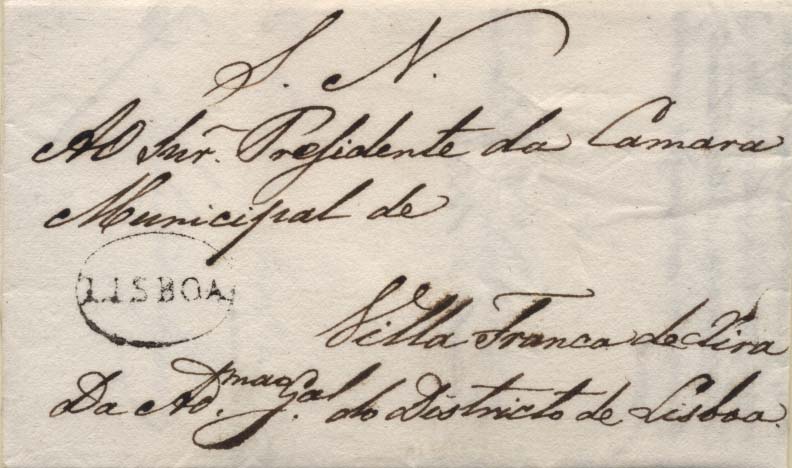 S. N.
Ao Snr. Presidente da Camara
Municipal de
LISBOA
Villa Franca de Xira
Da Ad.mão G.al do Districto de Lisboa.